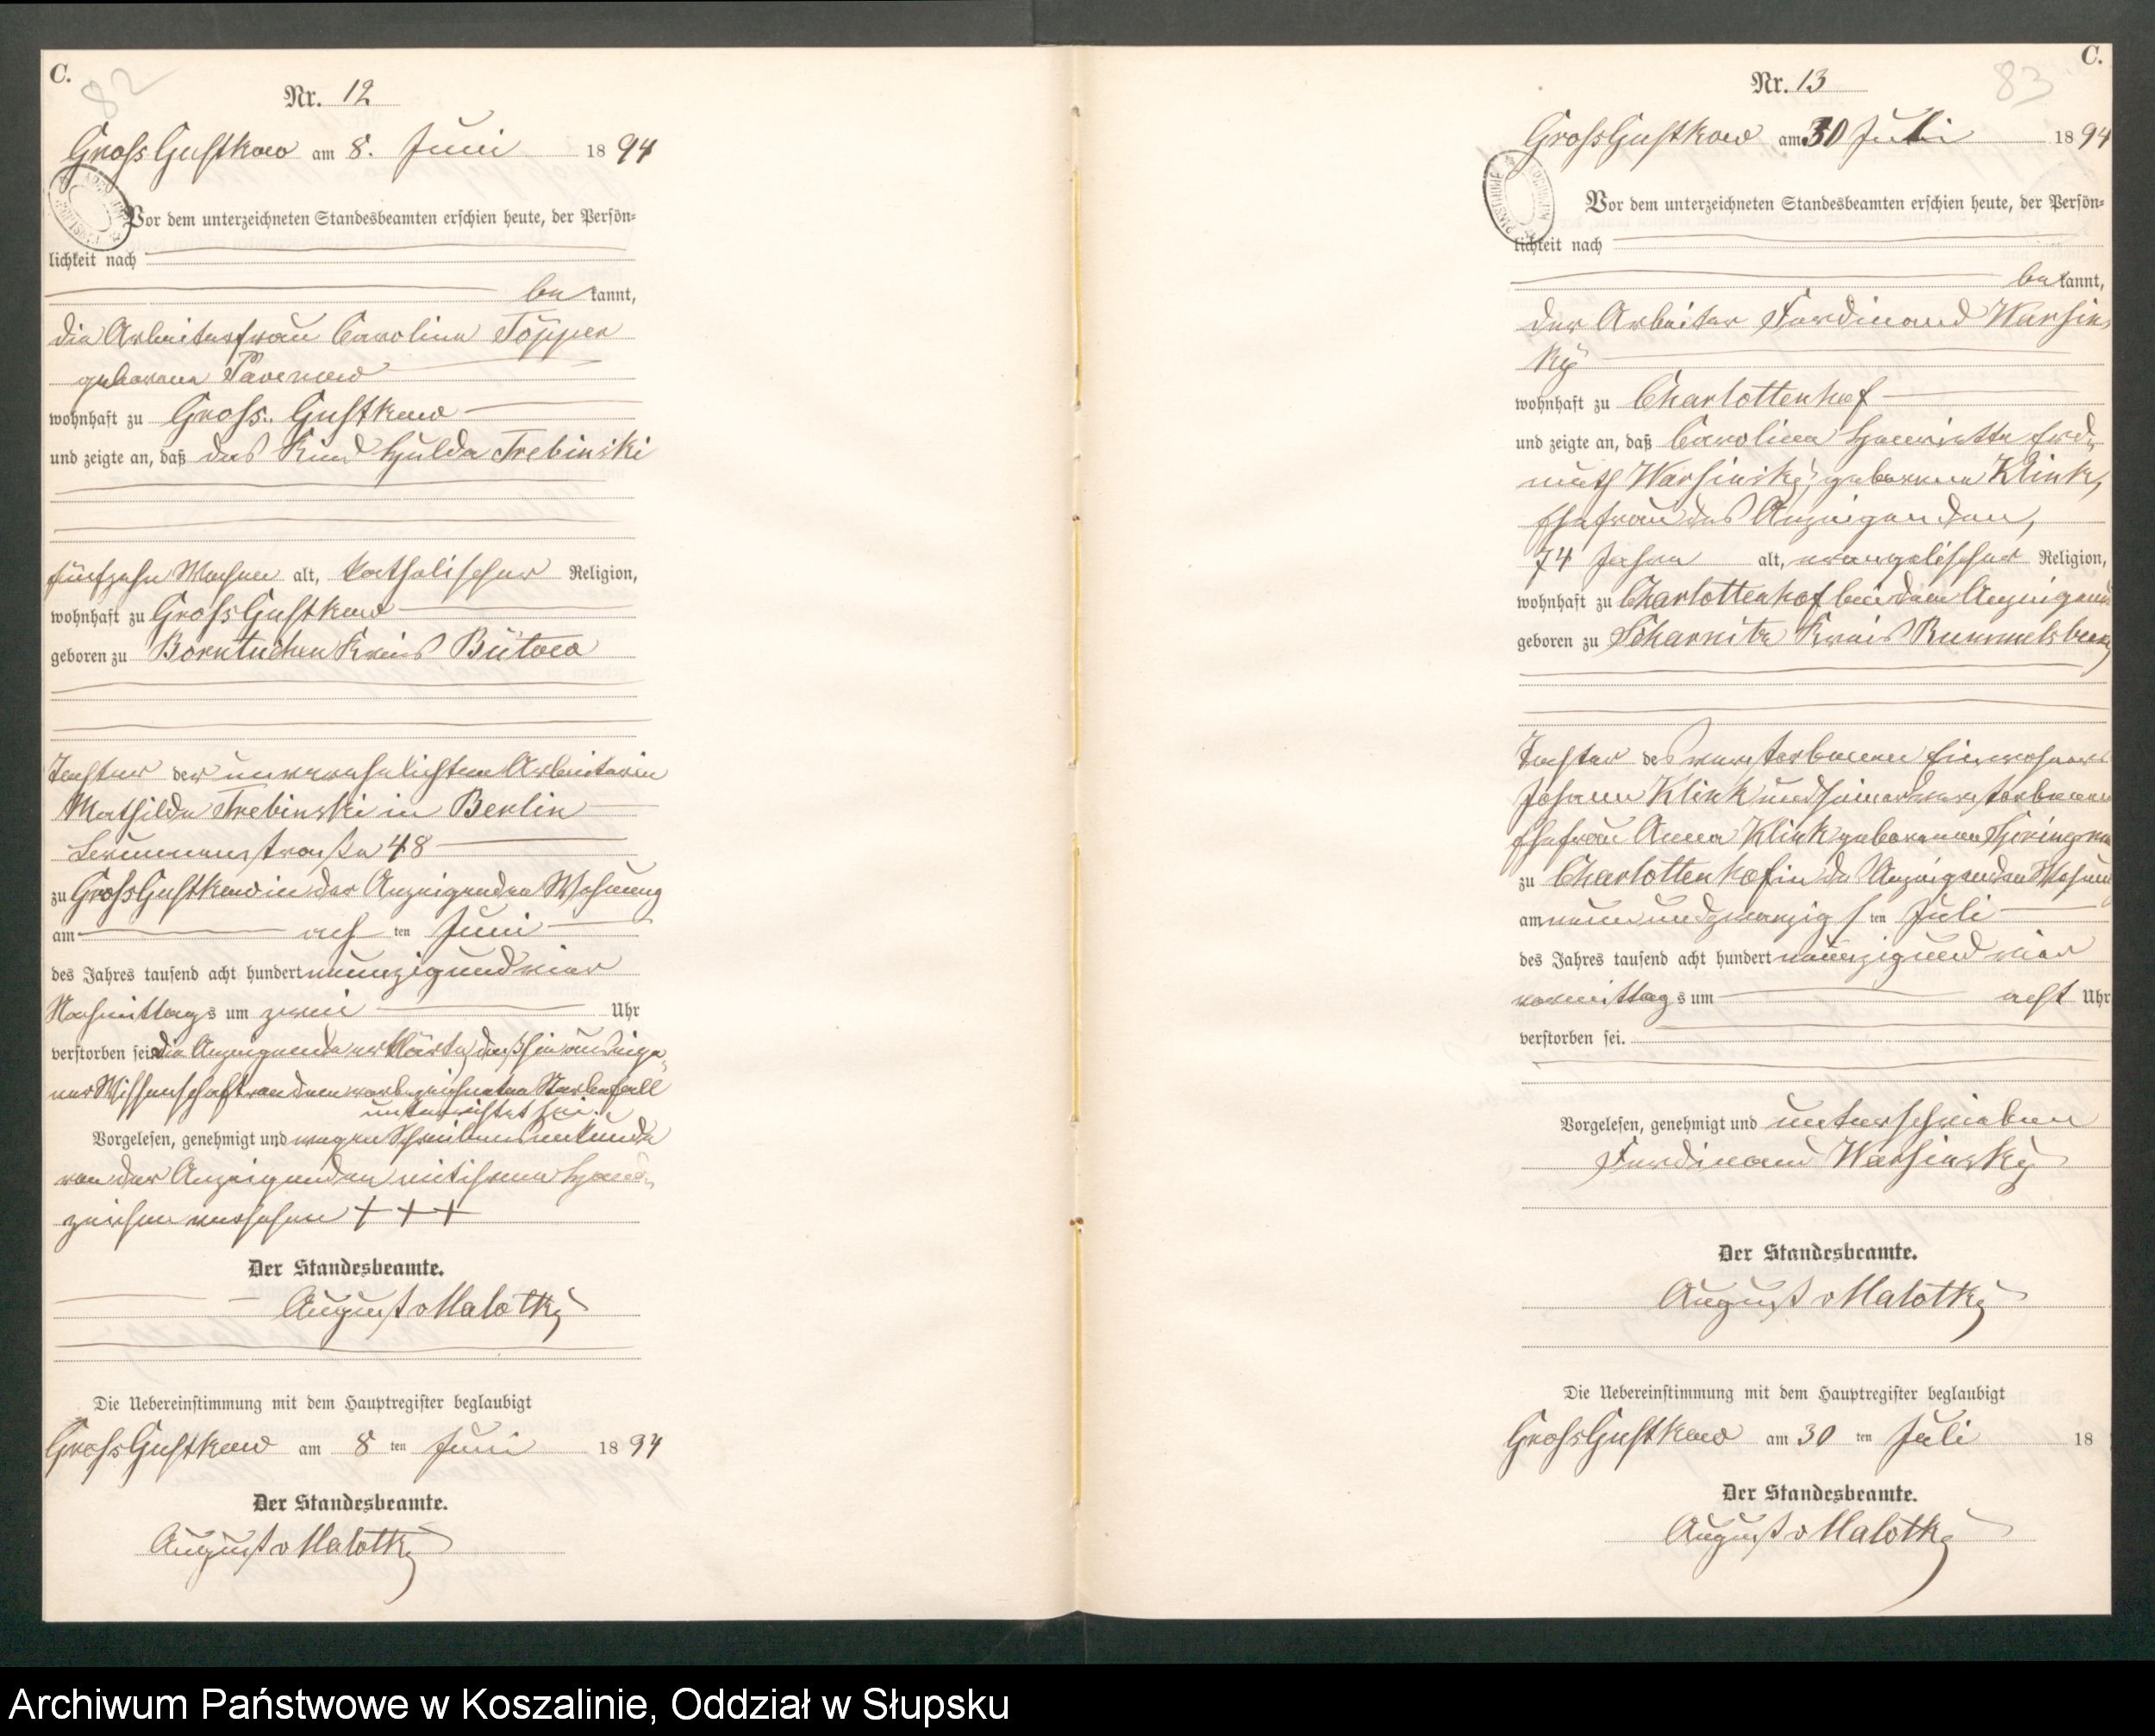 C.
82
Nr. 12
Gross Gustkow am 8. Juni 1894
Vor dem unterzeichneten Standesbeamten erschien heute, der Persön-
lichkeit nach
be kannt,
die Arbeiterfrau Caroline Töpper
geborene
wohnhaft zu Gross Gustkow
und zeigte an, daß das Kind Hulda Trebinski
fünfzehn Wochen alt, katholischer Religion,
wohnhaft zu Gross Gustkow
geboren zu Borntuchen Kreis Bütow
Tochter der unverehelichten Arbeiterin
Mathilde Trebinski in Berlin
48
zu Gross Gustkow in der Anzeigenden Wohnung
am acht ten Juni
des Jahres tausend acht hundert neunzig und vier
Nachmittags um zwei Uhr
verstorben sei. Die Anzeigende erklärte, daß sie aus eige-
ner Wissenschaft von dem vorbezeichneten Sterbefall
unterrichtet sei.
Vorgelesen, genehmigt und wegen Schreibensunkunde
von der Anzeigenden mit ihrem Hand-
zeichen versehen + + +
Der Standesbeamte.
August v Malottky
Die Uebereinstimmung mit dem Hauptregister beglaubigt
Gross Gustkow am 8 ten Juni 1894
Der Standesbeamte.
August v Malottky
C.
83
Nr. 13
Gross Gustkow am 30 Juli 1894
Vor dem unterzeichneten Standesbeamten erschien heute, der Persön-
lichkeit nach
be kannt,
der Arbeiter Ferdinand Warsins
ky
wohnhaft zu Charlottenhof
und zeigte an, daß Caroline Henriette Erd-
muth Warsinsky, geborene Klink,
Ehefrau des Anzeigenden,
74 Jahre alt, evangelischer Religion,
wohnhaft zu Charlottenhof bei dem Anzeigend
geboren zu Scharnitz Kreis Rummelsburg
Tochter des verstorbenen Einwohners
Johann Klink und seiner verstorbenen
Ehefrau Anna Klink geborenen
zu Charlottenhof in des Anzeigenden Wohnung
am neunundzwanzigs ten Juli
des Jahres tausend acht hundert neunzig und vier
vormittag s um acht Uhr
verstorben sei.
Vorgelesen, genehmigt und unterschrieben
Ferdinand Warsinsky
Der Standesbeamte.
August v Malottky
Die Uebereinstimmung mit dem Hauptregister beglaubigt
Gross Gustkow am 30 ten Juli 18
Der Standesbeamte.
August v Malottky
Archiwum Państwowe w Koszalinie, Oddział w Słupsku